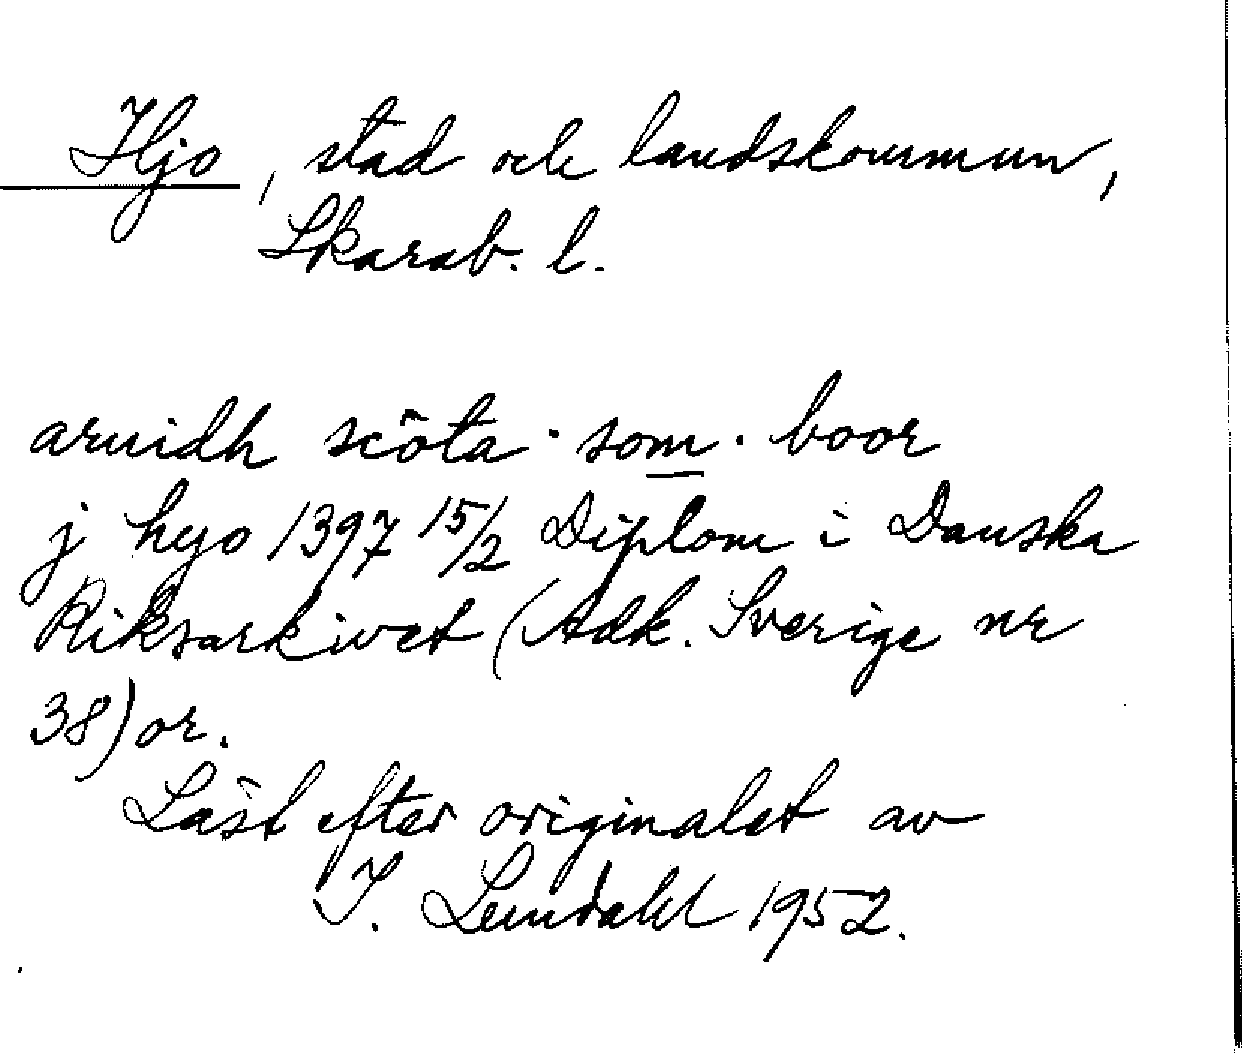 Hjo, stad och landskommun,
Skarab. l.
aruidh scöta · som · boor
j hyo 1397 15/2 Diplom i Danska
Riksarkivet (Adk. Sverige nr
38) or.
Läst efter originalet av
I. Lundahl 1952.